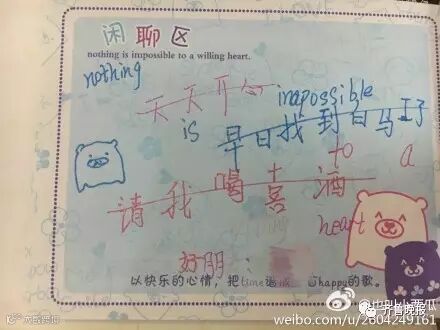 闲聊区
nothing is impossible to a willing heart.
nothing
天天开心
impossible
is
早日找到白马王子
to
a
请我喝喜酒
heart
好朋
以快乐的心情,把time
happy的歌。
齐鲁晚报
weibo.com/u/2604249161